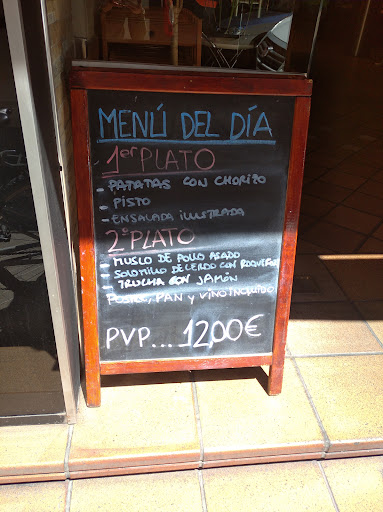 MENÚ DEL DÍA
1er PLATO
- PATATAS CON CHORIZO
- PISTO
- ENSALADA ILUSTRADA
2º PLATO
- MUSLO DE POLLO ASADO
- SOLOMILLO DE CERDO CON ROQUEFORT
- TRUCHA CON JAMÓN
POSTRE, PAN Y VINO INCLUIDO
PVP... 12,00€